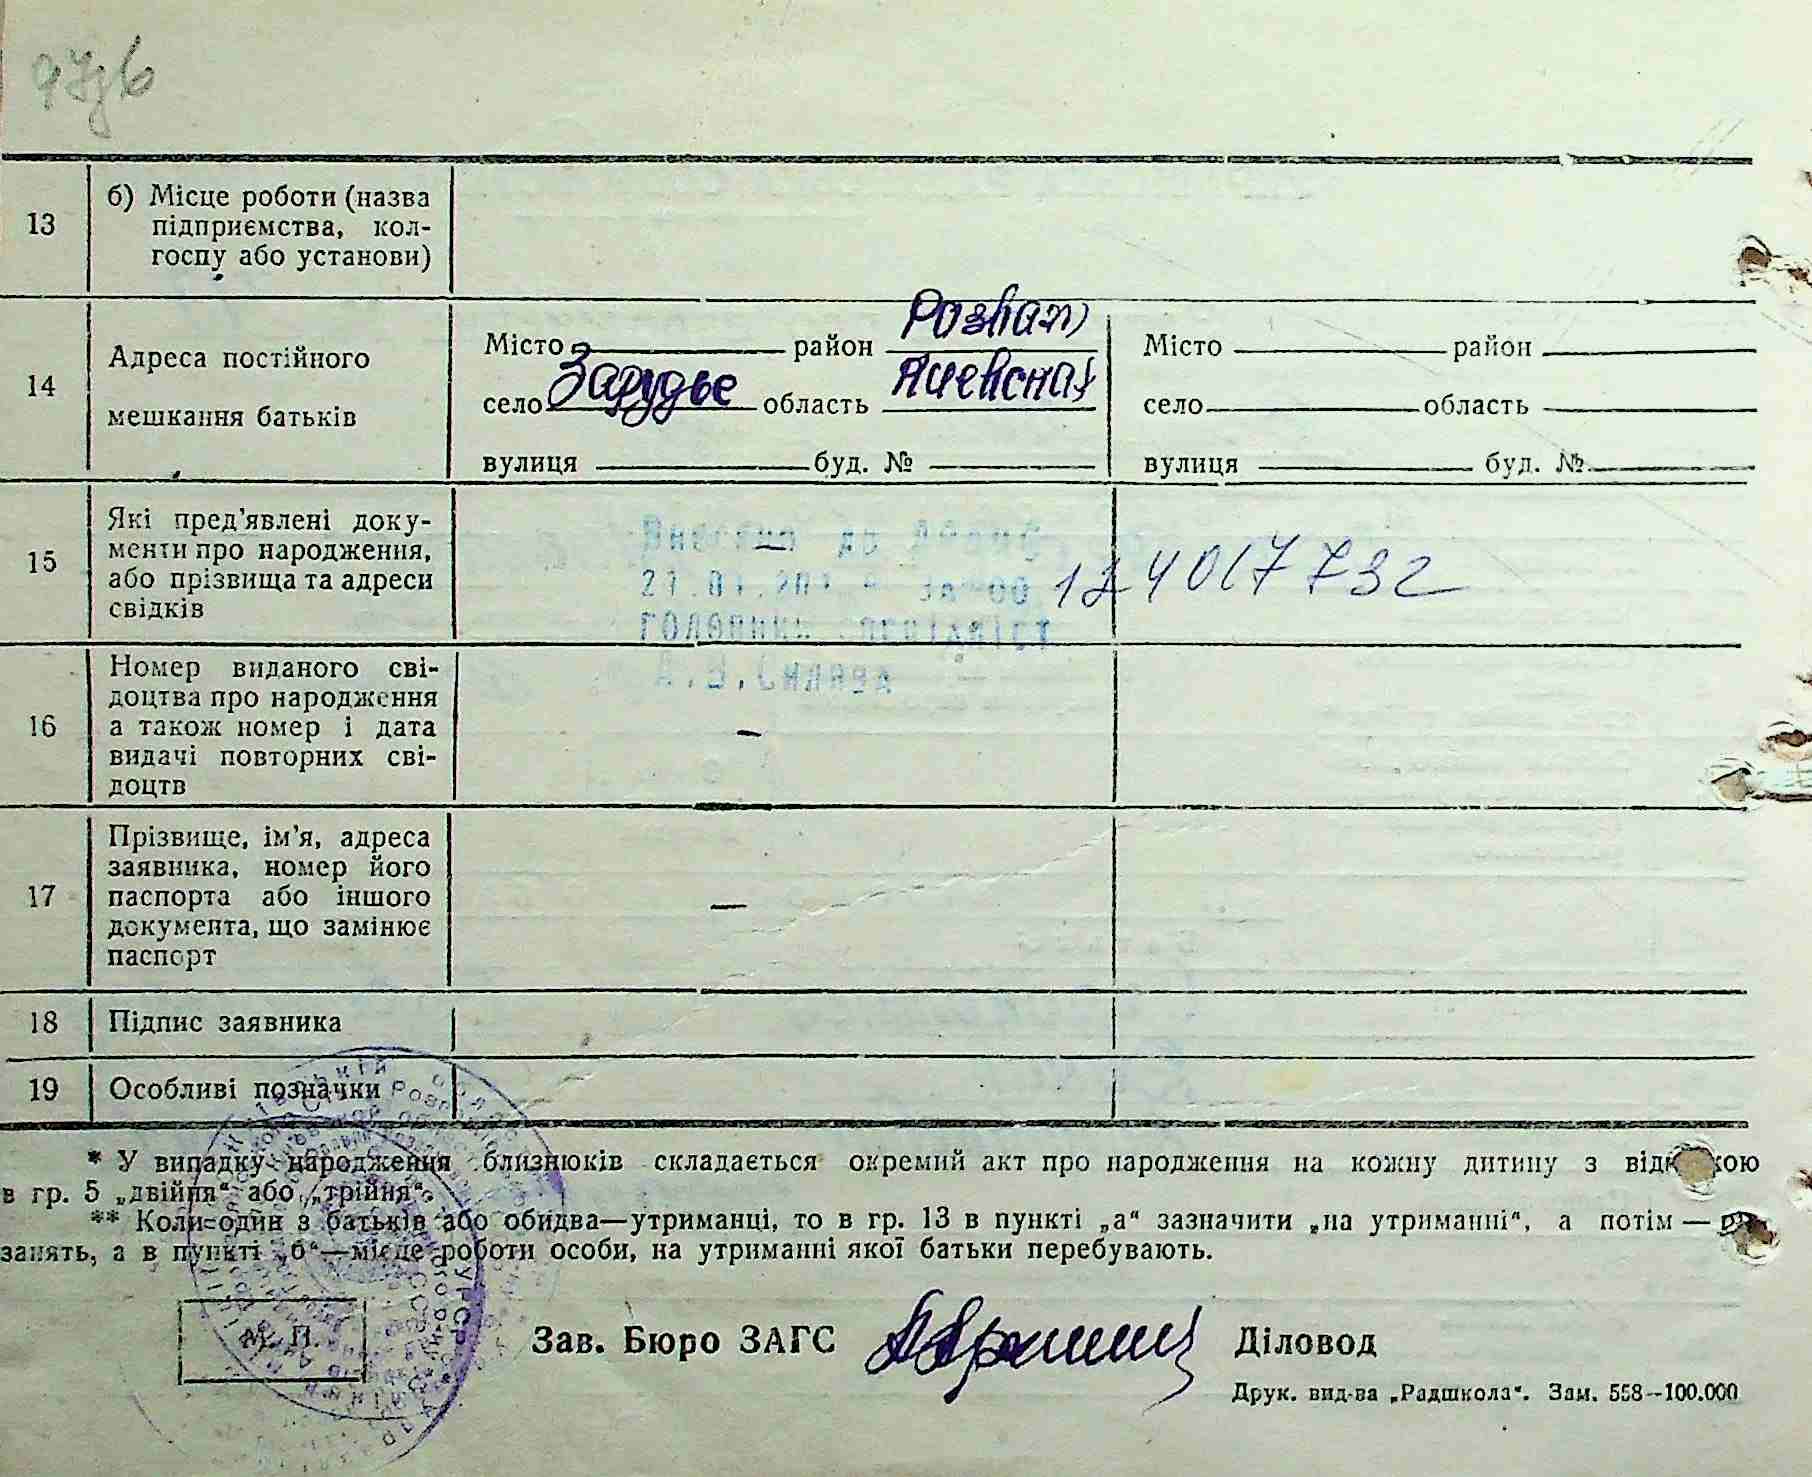 97зв
13
б) Місце роботи (назва
підприємства, кол-
госпу або установи)
14
Адреса постійного
мешкання батьків
Місто район Розваж
село Зарудье область Киевская
вулиця буд. №
Місто район
село область
вулиця буд. №
15
Які пред'явлені доку-
менти про народження,
або прізвища та адреси
свідків
Внесено до
за 00 124017732
головний спеціаліст
16
Номер виданого сві-
доцтва про народження
а також номер і дата
видачі повторних сві-
доцтв
–
17
Прізвище, ім'я, адреса
заявника, номер його
паспорта або іншого
документа, що замінює
паспорт
–
18
Підпис заявника
19
Особливі позначки
* У випадку народження близнюків складається окремий акт про народження на кожну дитину з відміткою
в гр. 5 „двійня“ або „трійня“.
** Коли один з батьків або обидва—утриманці, то в гр. 13 в пункті „а“ зазначити „на утриманні“, а потім —
занять, а в пункті „б“—місце роботи особи, на утриманні якої батьки перебувають.
М. П.
Зав. Бюро ЗАГС
Діловод
Друк. вид-ва „Радшкола“. Зам. 558—100.000